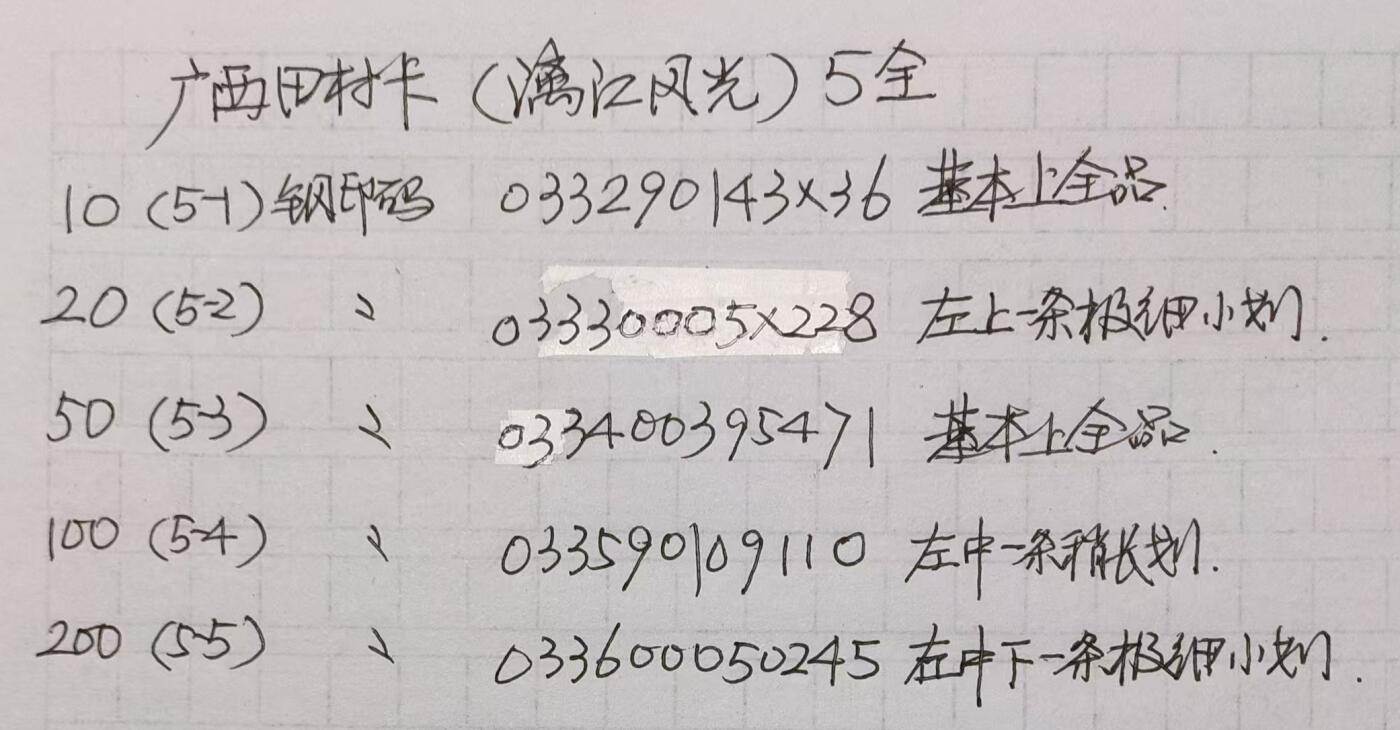 广西田村卡(漓江风光)5全
10(5-1)钢印码 033290143×36 基本上全品.
20(5-2) 〃 03330005×228 左上一条极细小划.
50(5-3) 〃 033400395471 基本上全品.
100(5-4) 〃 033590109110 左中一条稍长划.
200(5-5) 〃 033600050245 左中下一条极细小划.